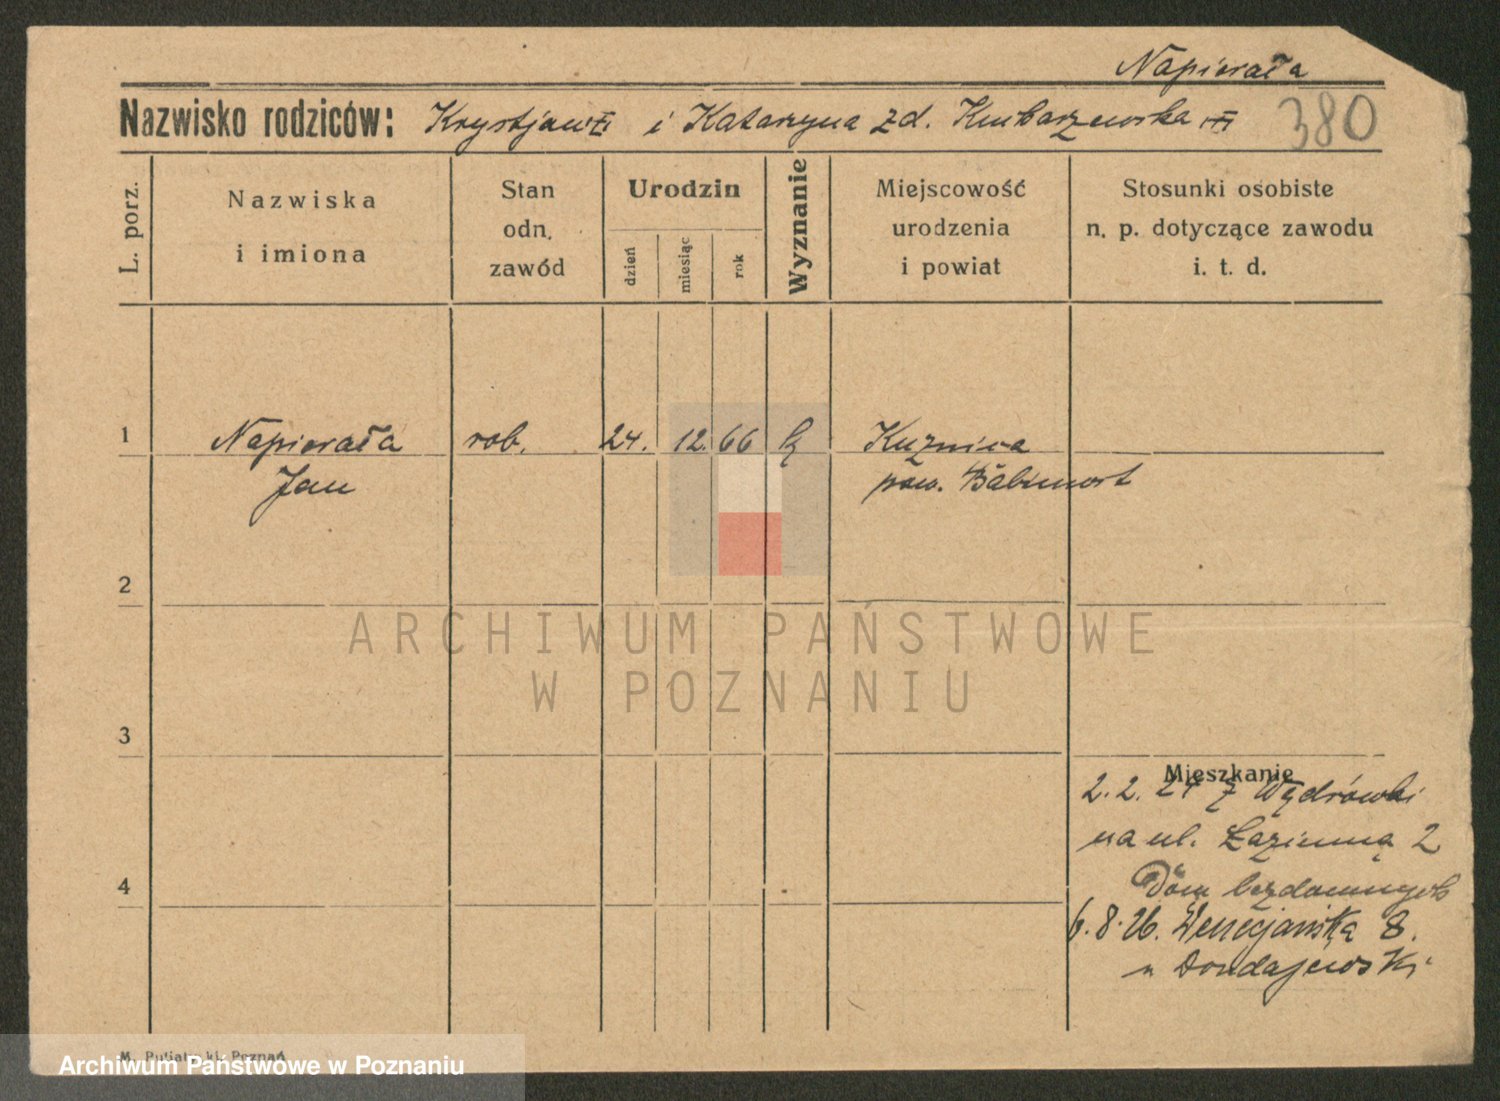 Napierała
Nazwisko rodziców: Krystjan i Katarzyna zd. Kucharzewska
380
L. porz.
Nazwiska
i imiona
Stan
odn.
zawód
Urodzin
dzień
miesiąc
rok
Wyznanie
Miejscowość
urodzenia
i powiat
Stosunki osobiste
n. p. dotyczące zawodu
i. t. d.
1 Napierała rob. 24. 12. 66 k Kuznica
Jan pow. Babimost
2
ARCHIWUM PAŃSTWOWE
W POZNANIU
3
Mieszkanie
2. 2. 24 z Wędrówki
na ul. Łazienną 2
4
Dom bezdomnych
6. 8. 26. Wenecjańska 8.
M. Putiatycki, Poznań
Archiwum Państwowe w Poznaniu